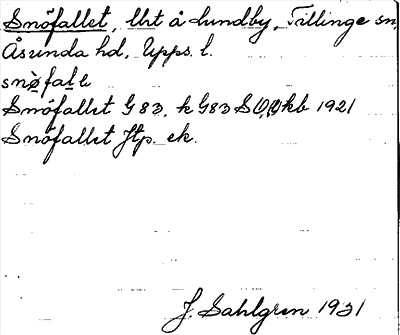 Snöfallet, lht å Lundby, Tillinge sn,
Åsunda hd, Upps. l.
snøfalle
Snöfallet G 83, k G83 Jkb 1921
Snöfallet Jtp. ek.
J. Sahlgren 1931